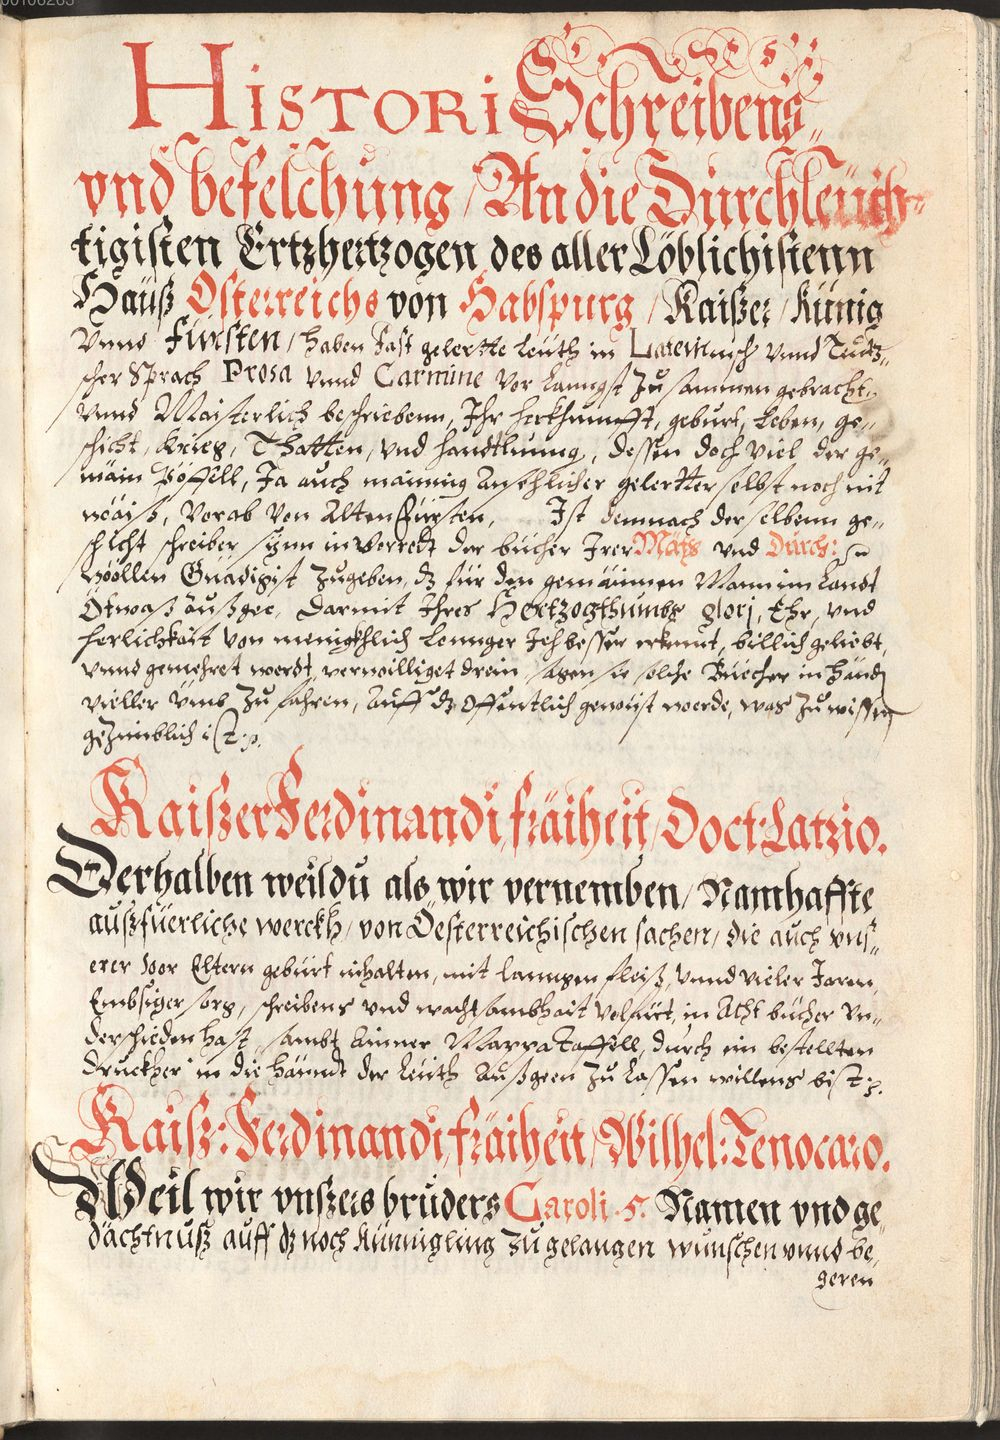 00106265
2
HISTORI Schreibens,
vnd befelchung / An die Durchleüch-
tigisten Ertzhertzogen des aller Löblichistenn
Hauß Österreichs von Habspurg / Kaißer / Künig
Vnnd Fürsten / haben Fast gelertte Leüth in Lateinnisch vnnd Teutz-
scher Sprach Prosa vnnd Carmine vor Lanngst zu samen gebracht,
vnnd Maisterlich beschriebenn, Ihr herkhumfft, geburt, Leben, ge-
schicht, krieg, Thatten, vnd handtlunng, dessen doch viel der ge-
main Pöffell, Ja auch mainnig Ansehlicher gelertter selbst noch nit
waiß, Vorab Von Alten Fürsten, Ist demnach derselbenn ge-
schicht schreiber sinn in Vorredt der bücher Irer May: vnd Durch:
wöollen Gnädigist zugeben, dz für den gemäinnen Mann im Landt
Ötwaß außgee, Darmit Ihres Hertzogthumbs glori, Ehr, vnd
herlichkäit von menigkhlich lennger Jeh besser erkennt, billich geliebt,
vnnd gemehret werdt, verwilliget drein, sagen sie solche Büecher in händ
vieller vmb zu fahren, auff dz offentlich gewüst werde, was zu wissen
gezimblich ist :p.
Kaißer Ferdinandi fräiheit / Doct: Latzio.
Derhalben weil du als wir vernemben / Namhaffte
außfüerliche werckh / von Oesterreichischen sachen / die auch vns-
erer Vor Eltern geburt inhalten, mit lanngen fleiß, vnnd vieler Jaren,
Embsiger sorg, schreibens vnd wachtsambhait Volfürt, in Acht bücher Vn-
derschieden hast, sambt Ainner Mappa Taffell, durch ein bestellten
druckher in die händt der Leüth außgeen zu Lassen willens bist :p.
Kaiß: Ferdinandi fräiheit / Wilhel: Zenocaro.
Weil wir vnßers bruders Caroli .5. Namen vnd ge-
dächtnuß auff dz noch künnigling zu gelangen wunschen vnnd be-
geren